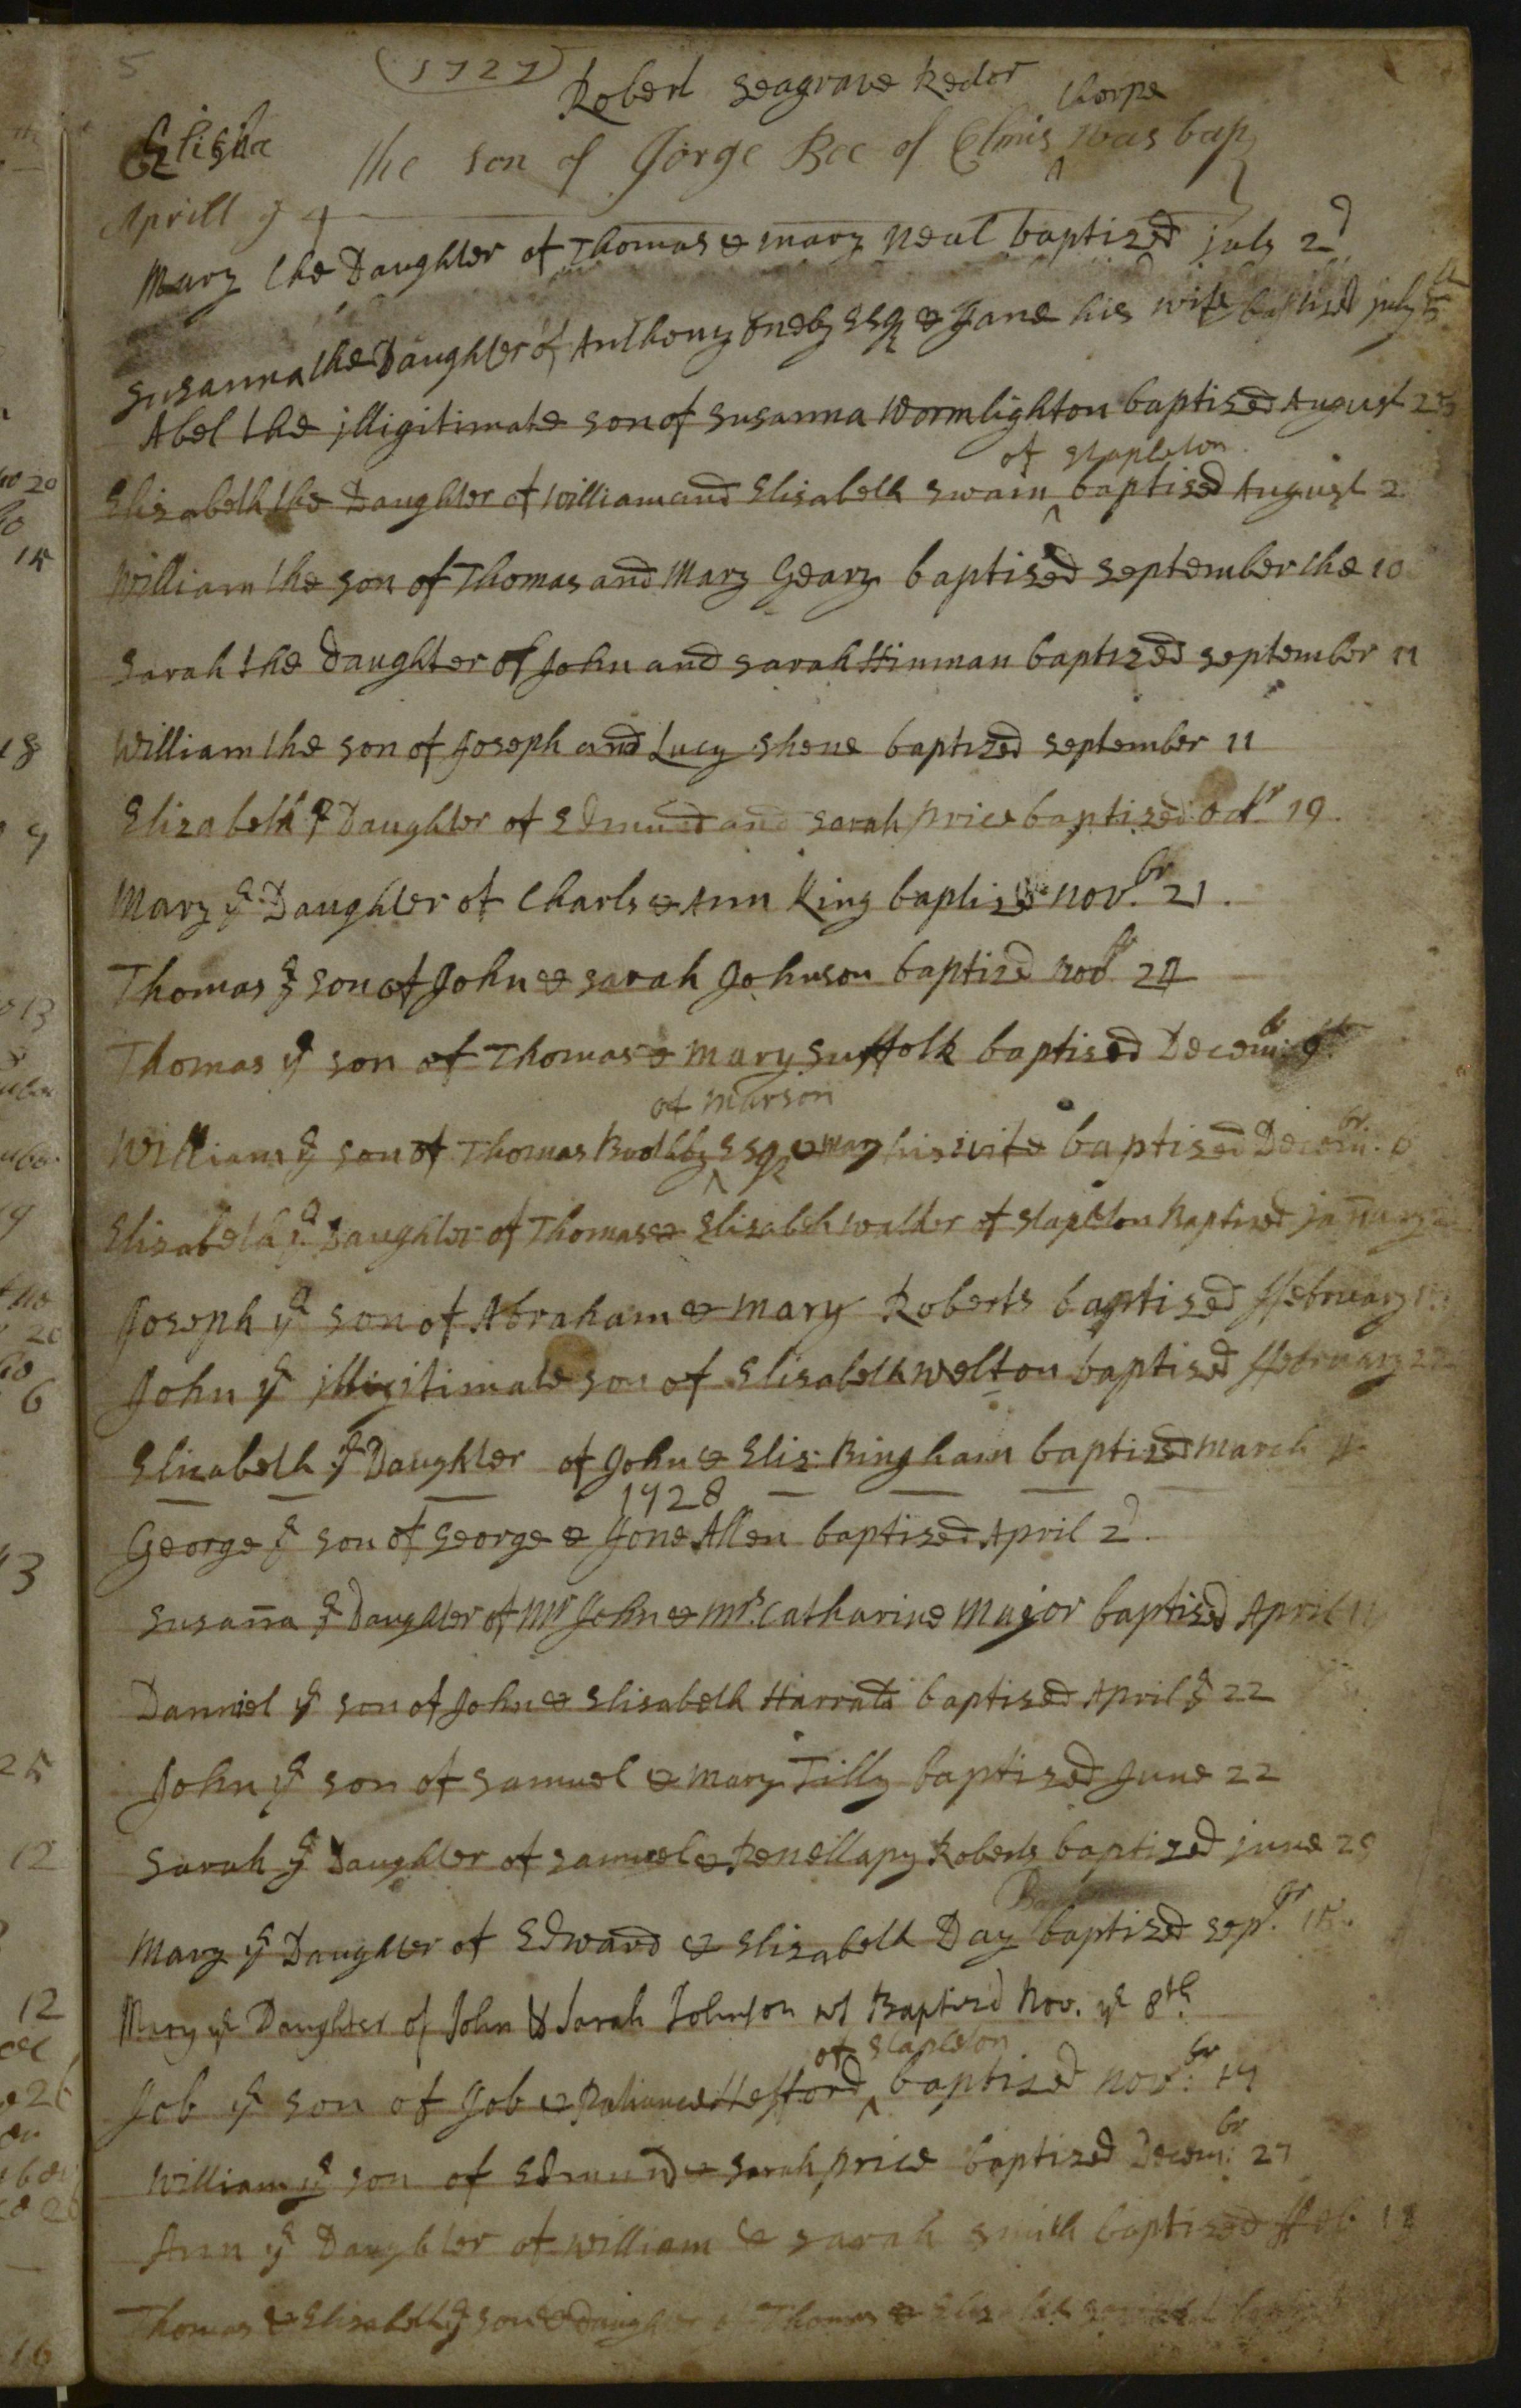 5
(1727)
Robert Seagrave Rector
thorpe
Elisha the son of Jorge Bee of Elmis ^ was bap
Aprill y 4
Mary the Daughter of Thomas & mary neal baptized july 2d
Susanna the Daughter of Anthony Oneby Esqr & Jane his wife baptized july
Abel the jlligitimate son of Susanna Wormlighton baptised August
of stapleton
Elisabeth the Daughter of William and Elisabeth Swain ^ baptised August 2
William the son of Thomas and Mary Geary baptised September the 10
Sarah the Daughter of John and Sarah Hinman baptized September 11
William the son of Joseph and Lucy Shene baptized September 11
Elizabeth ye Daughter of Edmund and Sarah price baptized Octbr 19
Mary ye Daughter of Charls & Ann King baptized novbr. 21.
Thomas ye son of John & Sarah Johnson baptizd novbr
Thomas ye son of Thomas & mary Suffolk baptised Decembr
of marson
William ye son of Thomas Boothby ^ Esqr & Mary his wife baptised Decembr. 6
Elisabeth ye Daughter of Thomas & Elisabeh walker of stapleton Baptized janury
Joseph ye son of Abraham & mary Roberts baptised ffebruary
John ye jlligitimate son of Elisabeth welton baptised ffebruary
Elizabeth ye Daughter of John & Eliz: Bingham baptized march
1728
George ye son of George & Jone Allen baptised April 2d.
Susana ye Daughter of Mr John & mrs. Catharine Major baptised April
Danniel ye son of John & Elisabeth Harratt baptised April ye 22
John ye son of Samuel & mary Tilly baptized June 22
Sarah ye Daughter of Samuel & Penellapy Roberts baptized june 29
Mary ye Daughter of Edward & Elisabeth Day baptized sepbr. 15.
Mary ye Daughter of John & Sarah Johnson ws Baptized Nov. ye 8th
of stapleton
Job ye son of Job & Patiance Hefford ^ baptized novbr:
William ye son of Edmund & Sarah price baptized Decembr: 27
Ann ye Daughter of William & Sarah Smith baptised ffeb 18
Thomas & Elisabeth ye son & Daughter of Thomas &